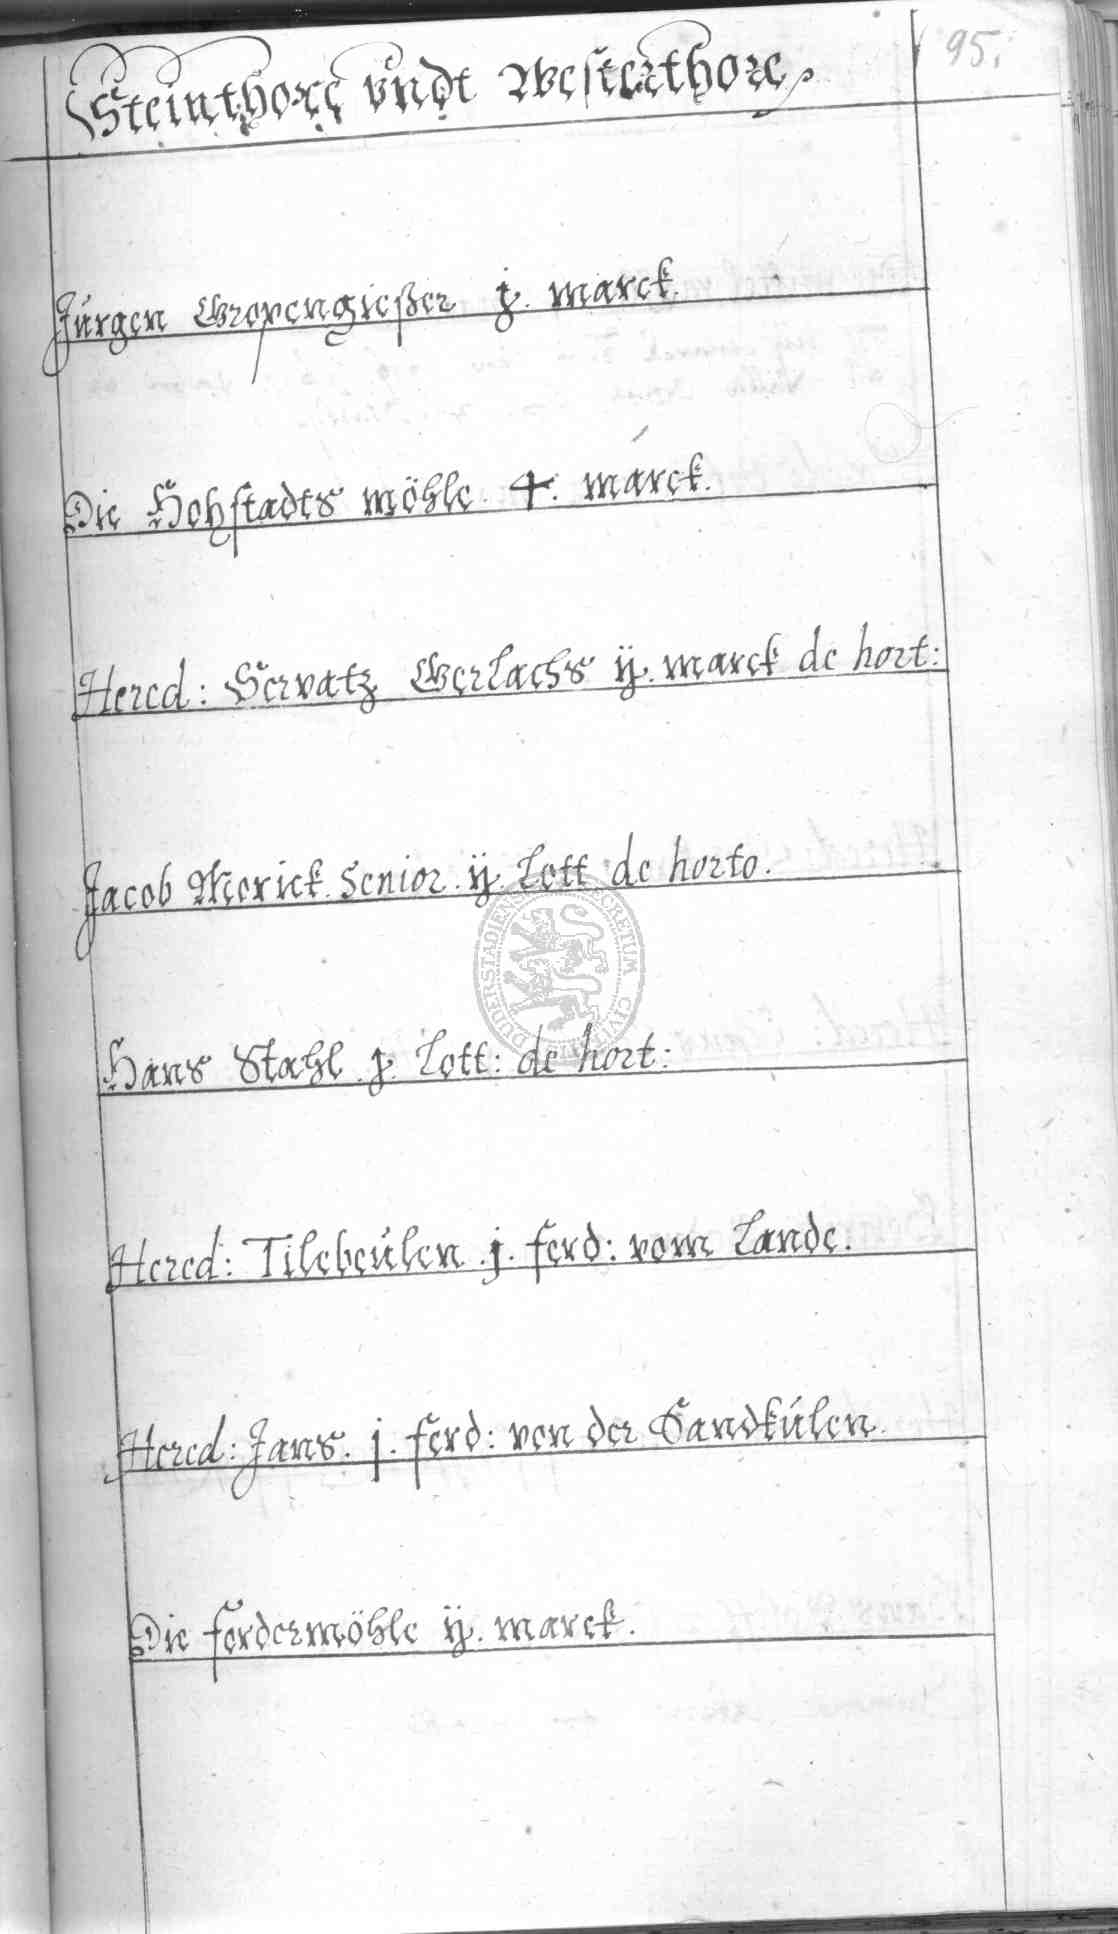 Steinthore vndt Westerthore,
95.
Jürgen Gropengießer j. marck.
Die Hohstadts möhle. 4. marck.
Hered: Servatz Gerlachs ij. marck de hort:
Jacob Merick. Senior. ij. Lott de horto.
Hans Stahl j. Lott: de hort:
DUDERSTADIENSIS SECRETUM CIVITATIS
Hered: Tilebeülen. j. ferd: vom Lande.
Hered: Jans. j. ferd: von der Sandkülen.
Die fordermöhle ij. marck.